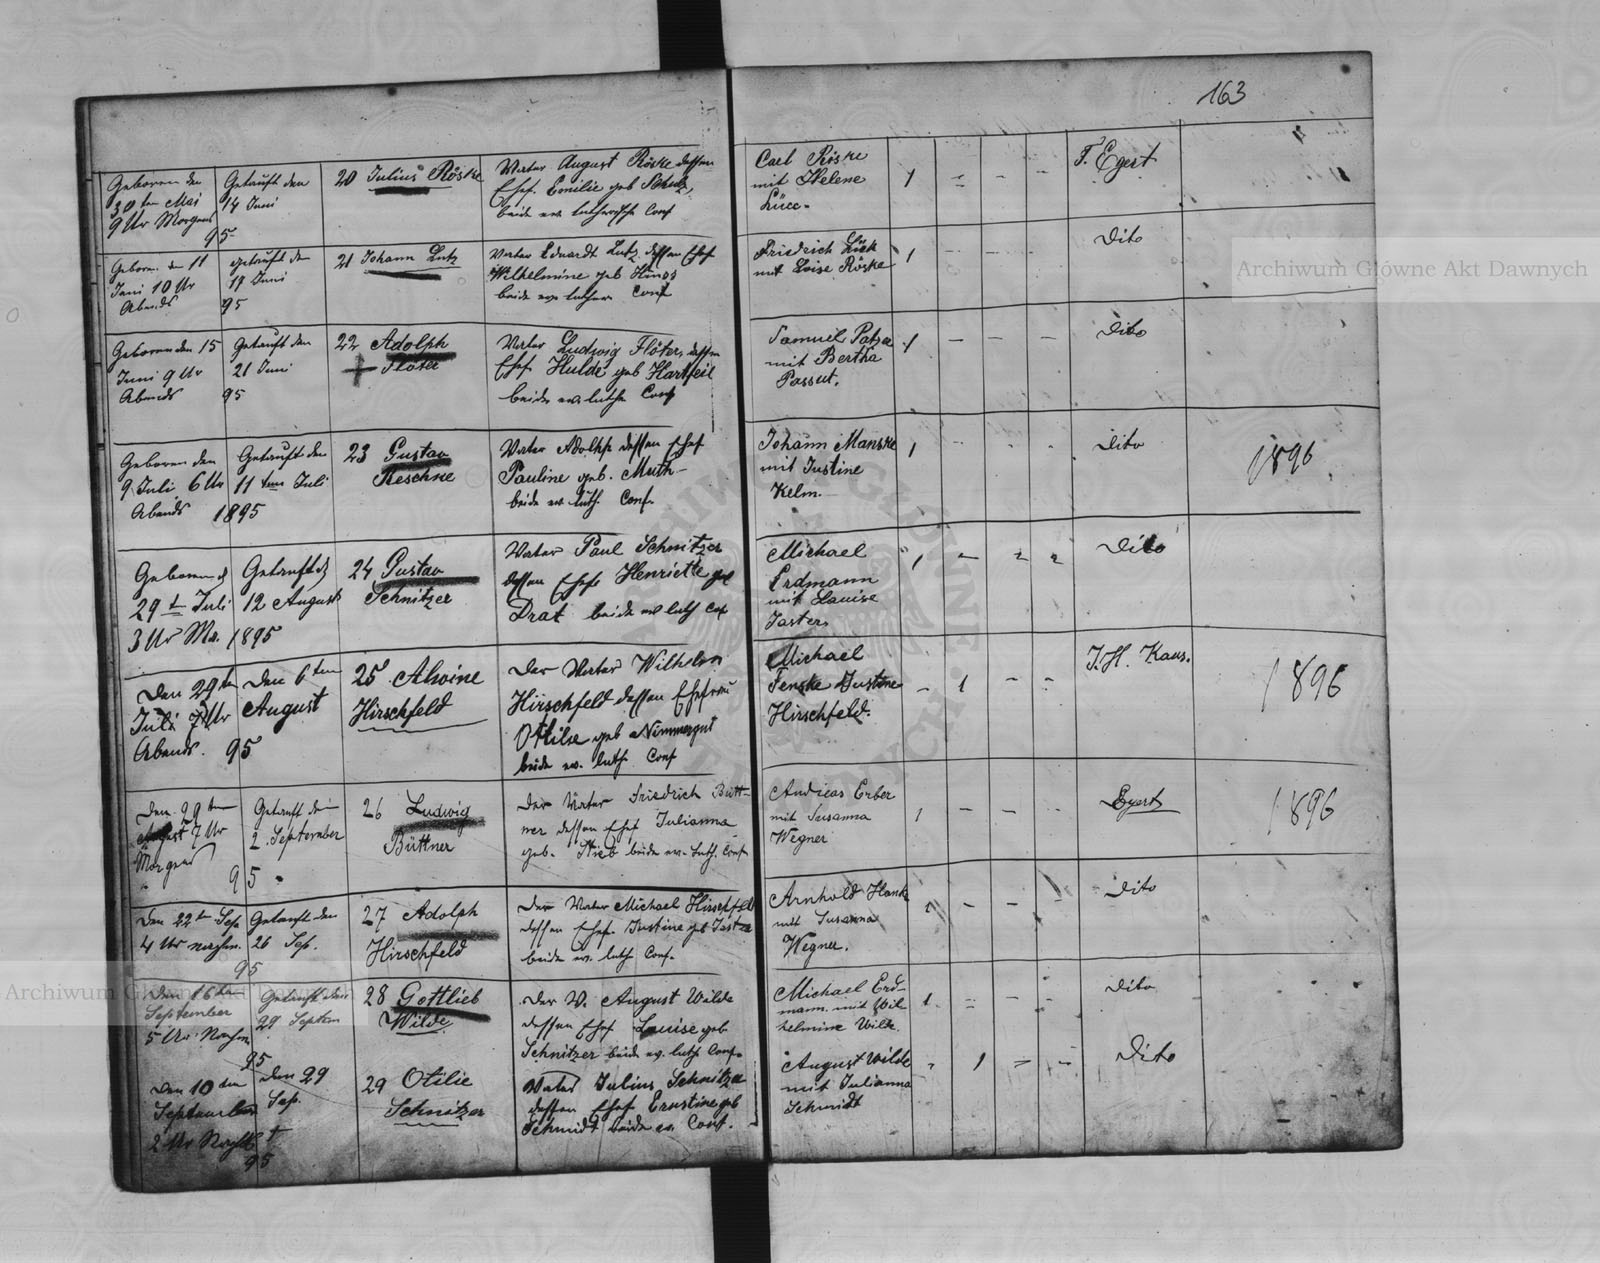 163
Geboren den
30ten Mai
9 Ur Morgens
95
Getauft den
14 Juni
20 Julius Röske
Vater August Röske dessen
Ehef. Emilie geb Schulz,
beide ev. lutherische Conf
Carl Röske
mit Helene
1 - - -
F. Egert
Geboren den 11
Juni 10 Ur
Abends
getauft den
17 Juni
95
21 Johann Lutz
Vater Eduardt Lutz dessen Ehef
Wilhelmine geb
beide ev. luther. Conf
Friedrich Lück
mit Loise Röske
1 - - -
Dito
Geboren den 15
Juni 9 Ur
Abends
Getauft den
21 Juni
95
22 Adolph
Flöter
Vater Ludwig Flöter, dessen
Ehef Hulde geb Hartfeil
beide ev. luthe Conf
Samuel
mit Bertha
1 - - -
Dito
Geboren den
9 Juli 6 Ur
Abends
Getauft den
11 ten Juli
1895
23 Gustav
Reschne
Vater Adolph dessen Ehef
Pauline geb. Muth
beide ev luth. Conf.
Johann Manske
mit Justine
Kelm.
1 - - -
Dito
1896
Geboren d
29 t Juli
3 Ur
Getauft d
12 August
1895
24 Gustav
Schnitzer
Vater Paul Schnitzer
dessen Ehefr Henriette geb
Drat beide ev luth Conf
Michael
Erdmann
mit Louise
Jaster.
1 - - -
Dito
Den 29 t
Juli 7 Ur
Abends.
Den 6 ten
August
95
25 Alwine
Hirschfeld
Der Vater Wilhelm
Hirschfeld dessen Ehefrau
Ottilie geb Nimmergut
beide ev. luth. Conf
Michael
Fenske Justine
Hirschfeld.
- 1 - -
J. H. Kaus.
1896
Den 29 ten
August 7 Ur
Morgens
Getauft den
2. September
95
26 Ludwig
Büttner
Der Vater Friedrich Bütt-
ner dessen Ehef Julianna
geb. beide ev. Luth. Conf
Andreas Erber
mit Susanna
Wegner
1 - - -
Egert
1896
Den 22 ten Sep.
4 Ur nachm.
Getauft den
26 Sep.
95
27 Adolph
Hirschfeld
Der Vater Michael Hirschfeld
dessen Ehef. Justine geb
beide ev. luth. Conf.
Arnhold Hanke
mit Susanna
Wegner.
1 - - -
Dito
Den 16 ten
September
5 Ur Nachm
Getauft den
29 Septem
95
28 Gottlieb
Wilde
Der V. August Wilde
dessen Ehef Louise geb
Schnitzer beide ev. luth Conf.
Michael Erd-
mann. mit Wil
helmine Wilde.
1 - - -
Dito
Den 10 ten
September
2 Ur
Den 29
Sep.
95
29 Otilie
Schnitzer
Vater Julius Schnitzer
dessen Ehef Ernstine geb
Schmidt beide ev. Conf.
August Wilde
mit Julianna
Schmidt
- 1 - -
Dito
Archiwum Główne Akt Dawnych
Archiwum Główne Akt Dawnych